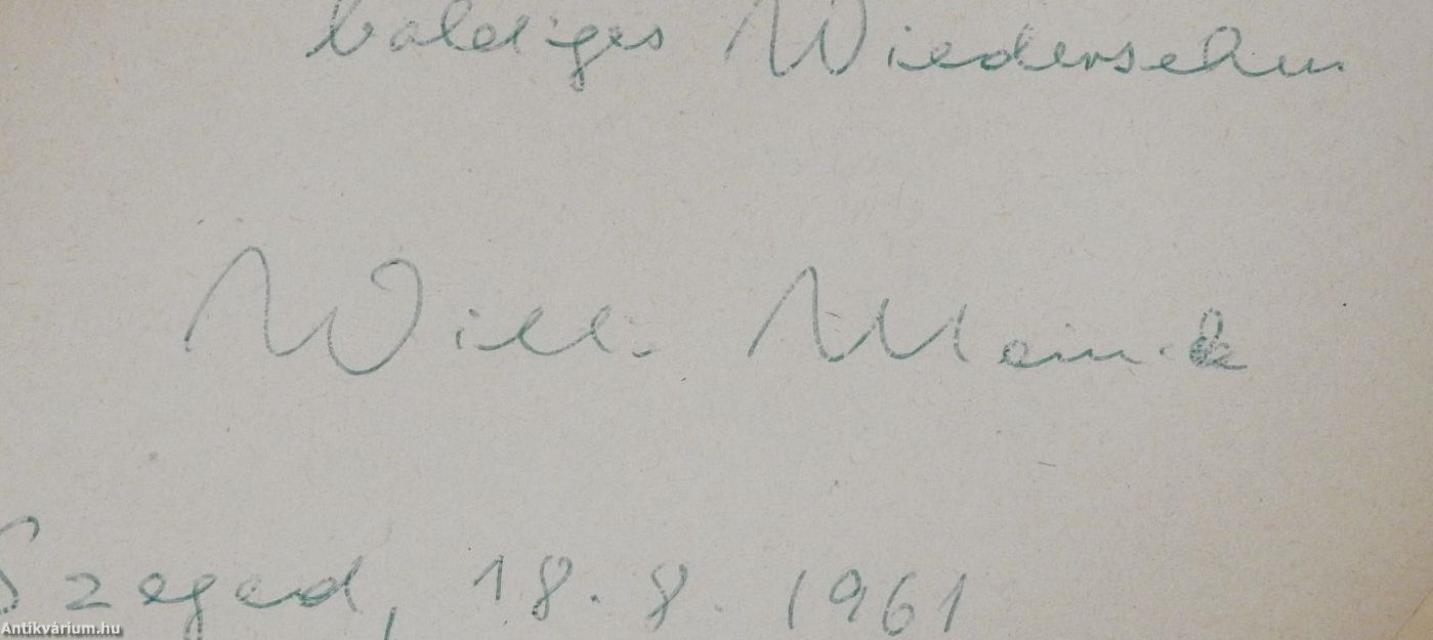 baldiges Wiedersehn
Willi Meinck
Szeged, 18. 8. 1961
Antikvárium.hu